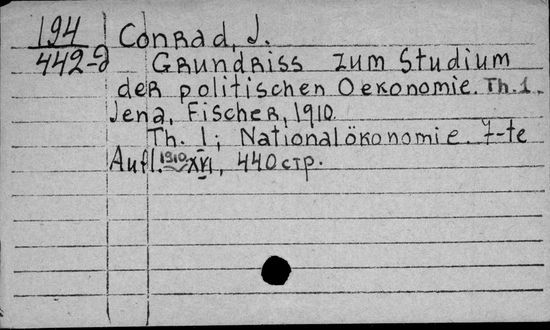 194 Conrad, J.
442-д Grundriss zum Studium
der politischen Oekonomie. Th. 1.
Jena, Fischer, 1910.
Th. 1; Nationalökonomie. 7-te
Aufl. 1910. XVI, 440 стр.